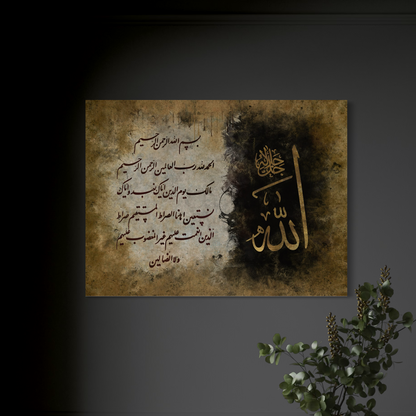 بسم الله الرحمن الرحيم
الحمد لله رب العالمين الرحمن الرحيم
مالك يوم الدين اياك نعبد واياك
نستعين اهدنا الصراط المستقيم صراط
الذين انعمت عليهم غير المغضوب عليهم
ولا الضالين
الله
جل جلاله